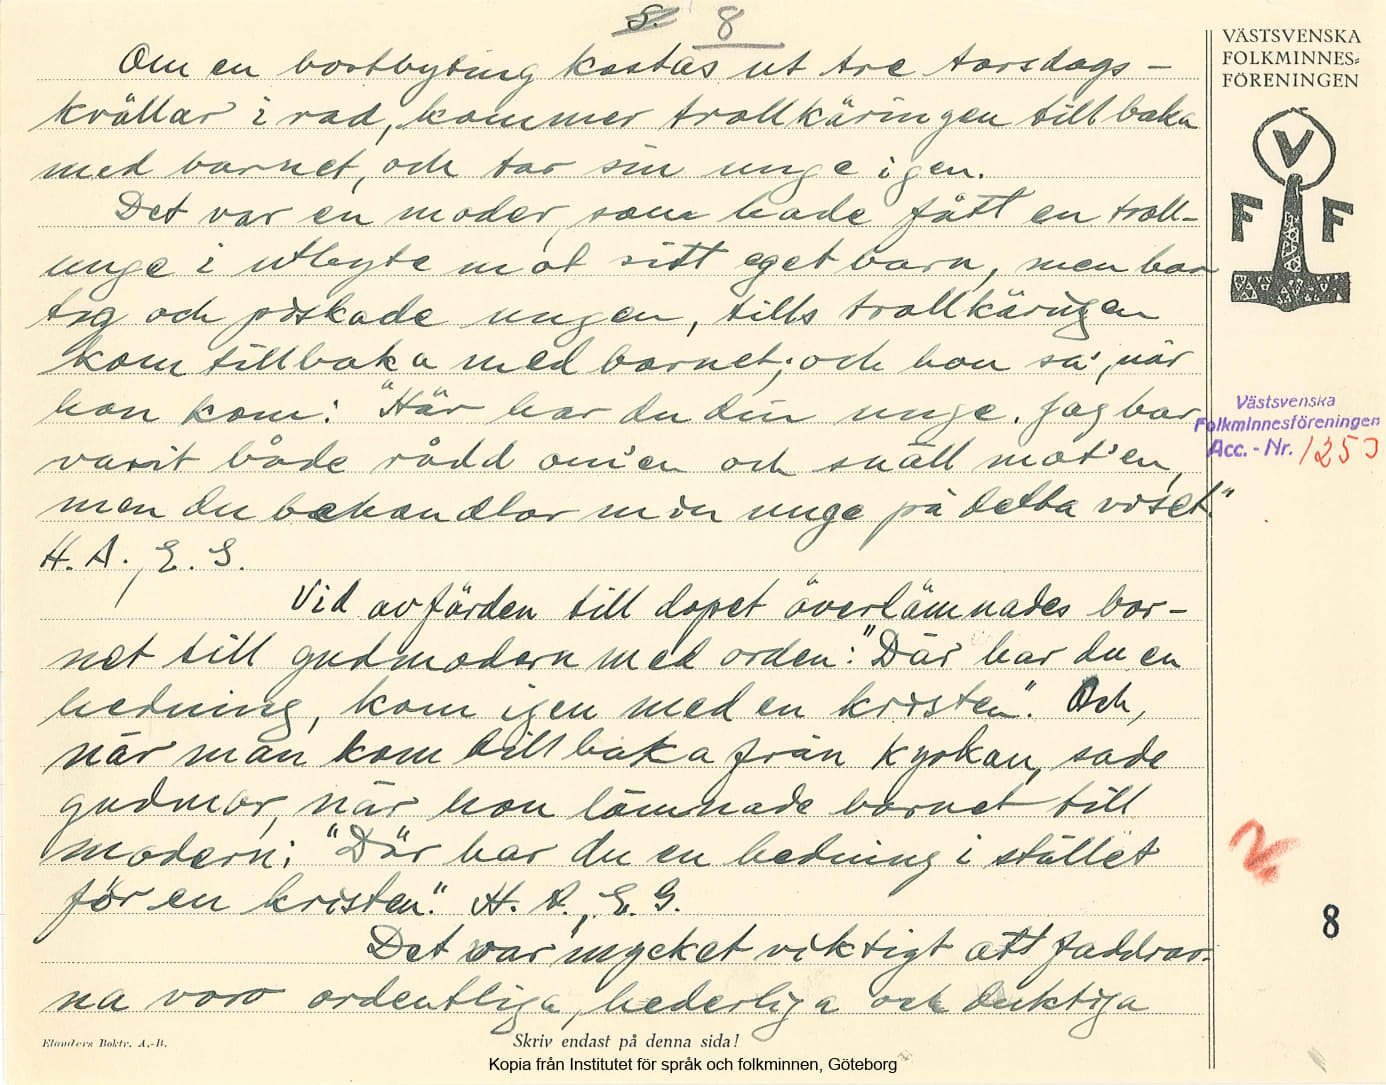 8
VÄSTSVENSKA
FOLKMINNES=
FÖRENINGEN
V
F F
Om en bortbyting kastas ut tre torsdags-
kvällar i rad, kommer trollkäringen tillbaka
med barnet, och tar sin unge igen.
Det var en moder, som hade fått en troll-
unge i utbyte mot sitt eget barn, men hon
tog och piskade ungen, tills trollkäringen
kom tillbaka med barnet; och hon sa', när
hon kom: "Här har du din unge. Jag har
varit både rädd om'en och snäll mot'en,
men du behandlar min unge på detta viset."
H. A., E. G.
Vid avfärden till dopet överlämnades bar-
net till gudmodern med orden: "Där har du en
hedning, kom igen med en kristen". Och,
när man kom tillbaka från kyrkan, sade
gudmor, när hon lämnade barnet till
modern: "Där har du en hedning i stället
för en kristen". H. A., E. G.
Det var mycket viktigt att faddrar-
na voro ordentliga, hederliga och duktiga
Västsvenska
Folkminnesföreningen
Acc. - Nr. 1253
8
Elanders Boktr. A.-B.
Skriv endast på denna sida!
Kopia från Institutet för språk och folkminnen, Göteborg